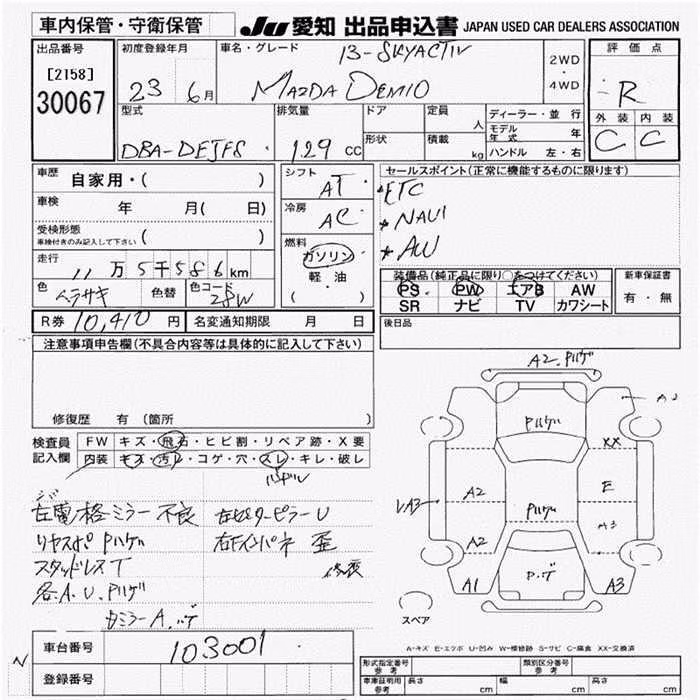 車内保管・守衛保管
JU 愛知 出品申込書 JAPAN USED CAR DEALERS ASSOCIATION
出品番号
[2158]
30067
初度登録年月
23 6月
車名・グレード
13-SKYACTIV
MAZDA DEMIO
2WD
・
4WD
評価点
R
外装 内装
C C
型式
DBA-DEJFS
排気量
1.29 cc
ドア
形状
定員 人
積載 kg
ディーラー・並行
モデル年式 年
ハンドル 左・右
車歴 自家用・( )
車検 年 月( 日)
受検形態
車検付きのみ記入して下さい ( )
走行
11万5千586km
色 ムラサキ 色替 色コード 28W
シフト AT
冷房 AC
燃料
ガソリン
軽・油
( )
セールスポイント(正常に機能するものに限ります)
*ETC
*NAVI
*AW
装備品(純正品に限り○をつけてください)
PS PW エアB AW
SR ナビ TV カワシート
新車保証書
有・無
R券 10,410円 名変通知期限 月 日
後日品
注意事項申告欄(不具合内容等は具体的に記入して下さい)
修復歴 有 (箇所 )
検査員
記入欄
FW キズ・飛石・ヒビ割・リペア跡・X要
内装 キズ・汚レ・コゲ・穴・スレ・キレ・破レ
ハンドル
左電格ミラー不良
リヤスポPハゲ
スタッドレスT
各A.U.Pハゲ
右インパネ 歪
A2.Pハゲ
Pハゲ
XX
A2
E
Pハゲ
A3
A2
A1
P.ハゲ
A3
スペア
A-キズ E-エクボ U-凹み W-補修跡 S-サビ C-腐食 XX-交換済
車台番号 103001
登録番号
形式指定番号
参考
類別区分番号
参考
車庫証明用
参考
長さ cm 幅 cm 高さ cm